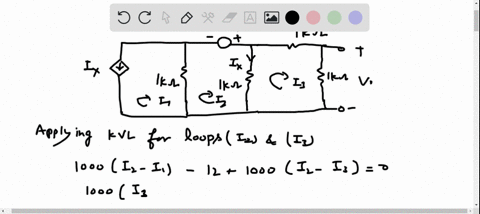 1kΩ
- +
Ix
1kΩ
Ix
1kΩ
1kΩ
+
V₀
-
I₁
I₂
I₃
Applying KVL for loops (I₂) & (I₃)
1000 (I₂-I₁) - 12 + 1000 (I₂ - I₃) = 0
1000 (I₃